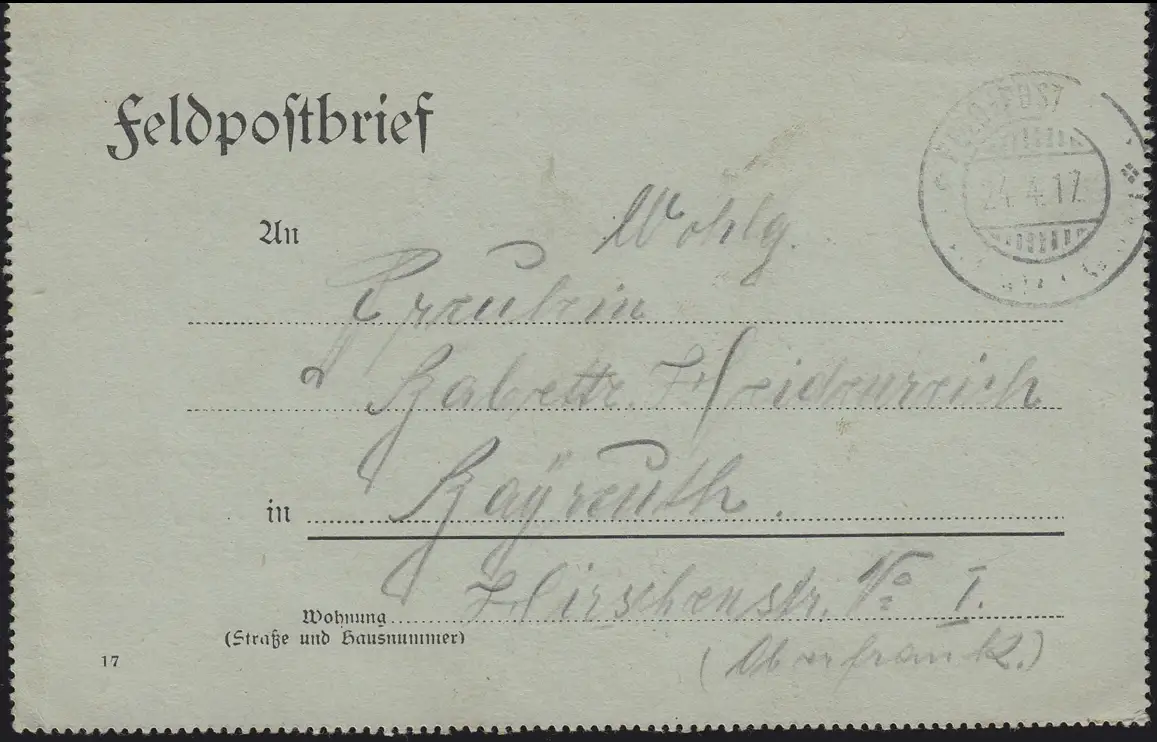 Feldpostbrief
FELD-POST
24.4.17
Wohlg.
An Fräulein
Babette Heidenreich
in Bayreuth.
Hirschenstr. No I.
Wohnung
(Straße und Hausnummer)
(Oberfrank.)
17